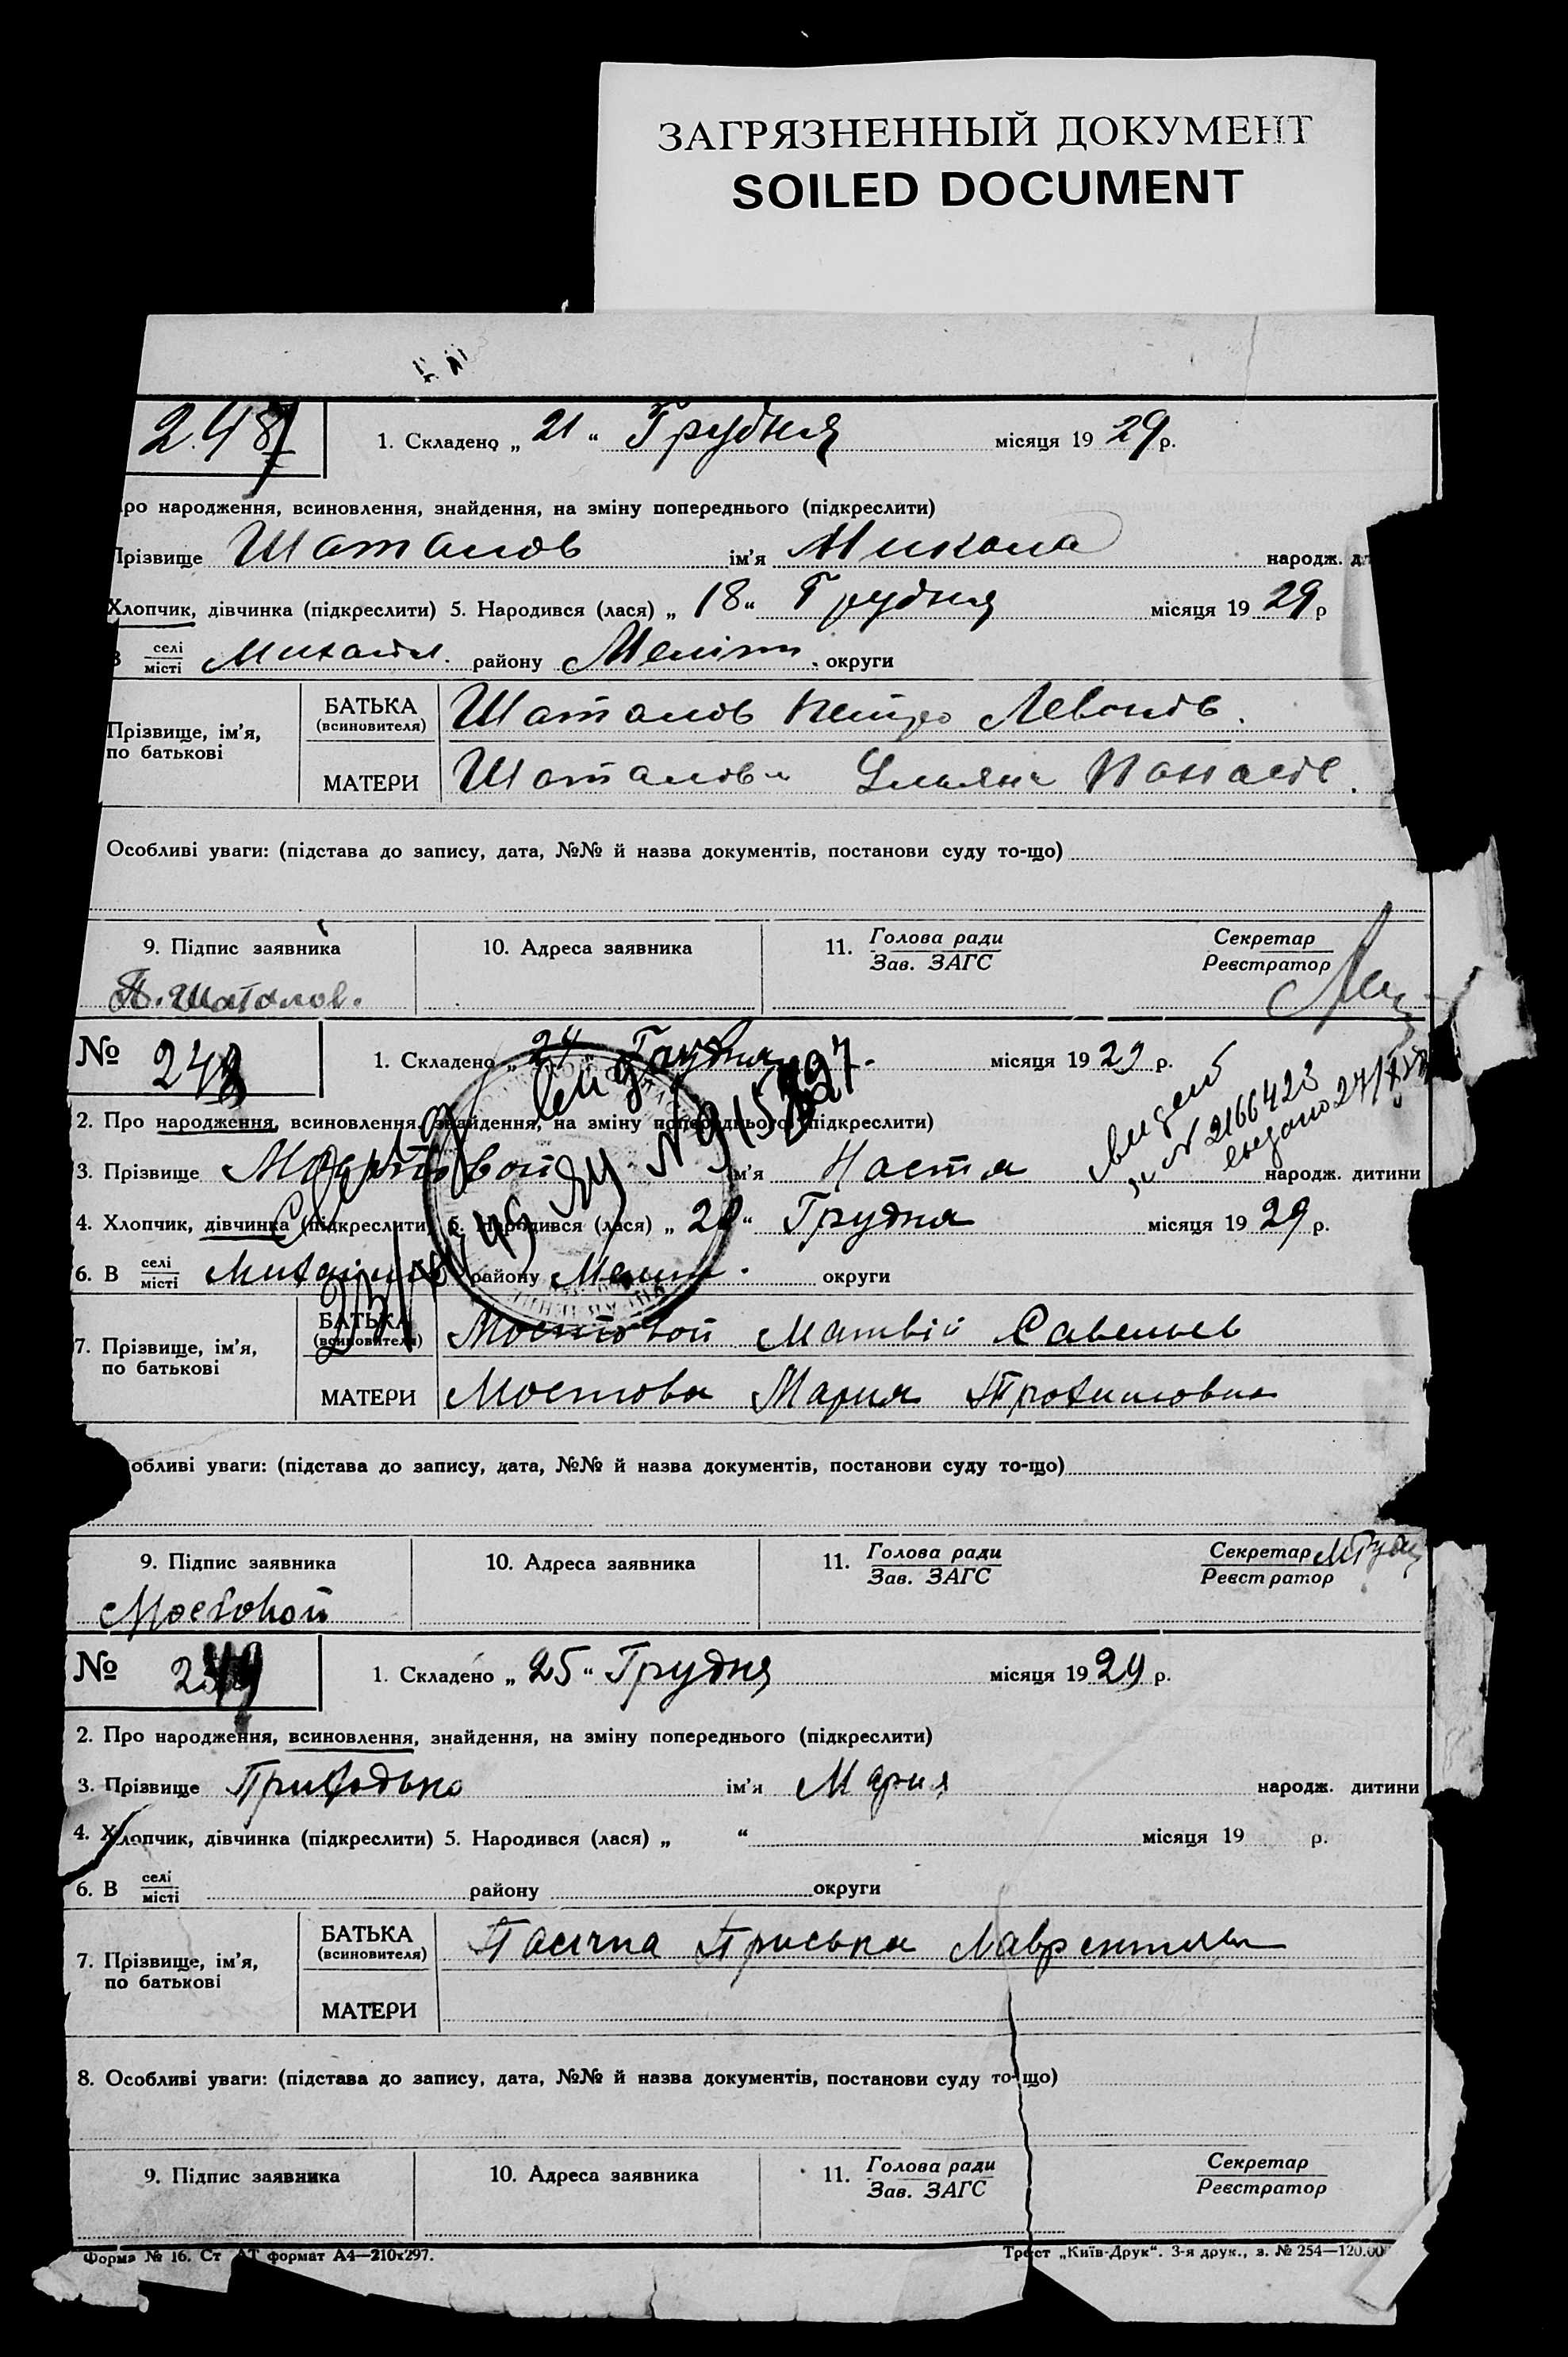 ЗАГРЯЗНЕННЫЙ ДОКУМЕНТ
SOILED DOCUMENT
247
1. Складено „ 21 “ Грудня місяця 19 29 р.
ро народження, всиновлення, знайдення, на зміну попереднього (підкреслити)
Прізвище Шаталов ім'я Микола народж. ди
Хлопчик, дівчинка (підкреслити) 5. Народився (лася) „ 18 “ Грудня місяця 19 29 р
В селі місті Михайл. району Меліт. округи
Прізвище, ім'я, по батькові
БАТЬКА (всиновителя) Шаталов Петро Левонов.
МАТЕРИ Шаталова Уляна Панасов.
Особливі уваги: (підстава до запису, дата, №№ й назва документів, постанови суду то-що)
9. Підпис заявника 10. Адреса заявника 11. Голова ради Зав. ЗАГС Секретар Реєстратор
П. Шаталов.
№ 248
1. Складено „ 24 “ Грудня місяця 19 29 р.
2. Про народження, всиновлення, знайдення, на зміну попереднього (підкреслити)
3. Прізвище Мостовой ім'я Настя народж. дитини
№ 2166423
4. Хлопчик, дівчинка (підкреслити) 5. Народився (лася) „ 20 “ Грудня місяця 19 29 р.
6. В селі місті району Меліт. округи
7. Прізвище, ім'я, по батькові
БАТЬКА (всиновителя) Мостовой Матвій Савельев
МАТЕРИ Мостова Мария Трохимовна
обливі уваги: (підстава до запису, дата, №№ й назва документів, постанови суду то-що)
9. Підпис заявника 10. Адреса заявника 11. Голова ради Зав. ЗАГС Секретар Реєстратор
Мостовой
№ 249
1. Складено „ 25 “ Грудня місяця 19 29 р.
2. Про народження, всиновлення, знайдення, на зміну попереднього (підкреслити)
3. Прізвище Приходько ім'я Мария народж. дитини
4. Хлопчик, дівчинка (підкреслити) 5. Народився (лася) „ “ місяця 19 р.
6. В селі місті району округи
7. Прізвище, ім'я, по батькові
БАТЬКА (всиновителя) Пасічна Приська
МАТЕРИ
8. Особливі уваги: (підстава до запису, дата, №№ й назва документів, постанови суду то-що)
9. Підпис заявника 10. Адреса заявника 11. Голова ради Зав. ЗАГС Секретар Реєстратор
Форма № 16. Ст АТ формат А4—210х297.
Трест „Київ-Друк“. 3-я друк., з. № 254—120.00